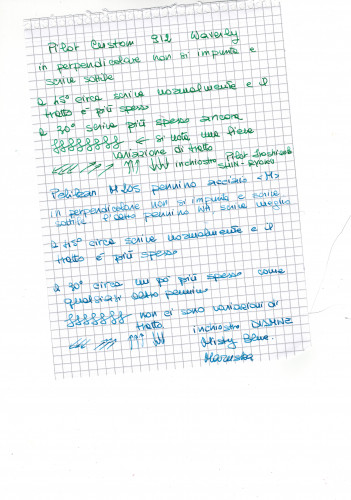 Pilot Custom 912 Waverly
in perpendicolare non si impunta e
scrive sottile
a 45° circa scrive normalmente e il
tratto è più spesso
a 30° scrive più spesso ancora
← si nota una lieve
variazione di tratto
inchiostro Pilot Iroshizuku
SHIN-RYOKU
Pelikan M205 pennino acciaio <M>
in perpendicolare non si impunta e scrive
sottile pennino WA scrive meglio
a 45° circa scrive normalmente e il
tratto è più spesso
a 30° circa un po' più spesso come
qualsiasi altro pennino
non ci sono variazioni di
tratto
inchiostro DIAMINE
Misty Blue